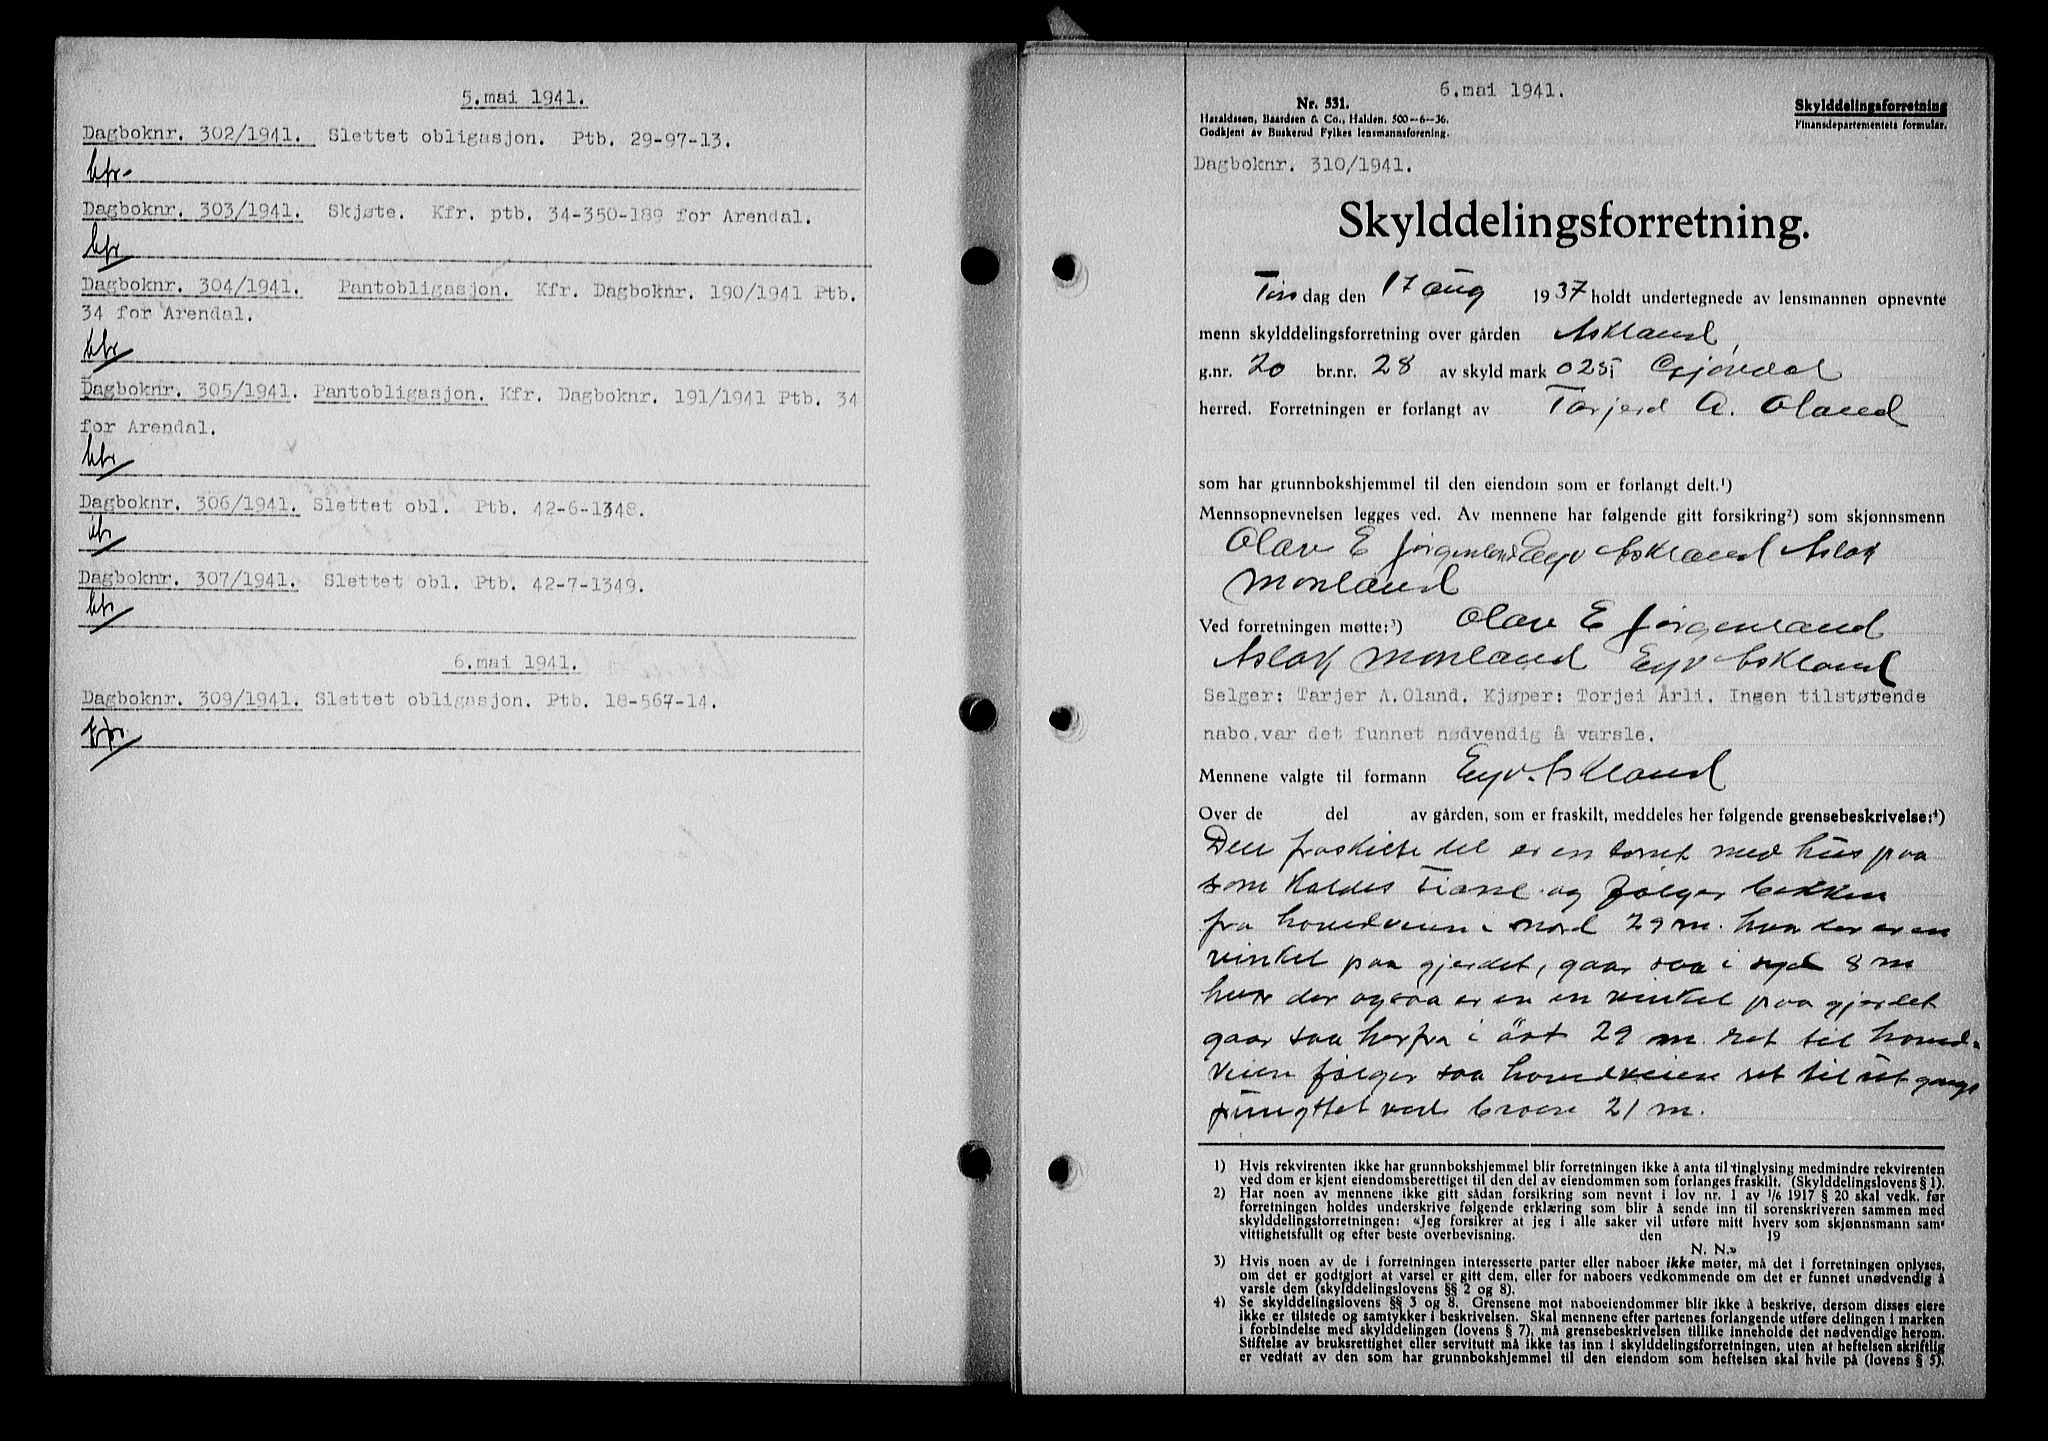 5.mai 1941.
Dagboknr. 302/1941. Slettet obligasjon. Ptb. 29-97-13.
Dagboknr. 303/1941. Skjøte. Kfr. ptb. 34-350-189 for Arendal.
Dagboknr. 304/1941. Pantobligasjon. Kfr. Dagboknr. 190/1941 Ptb.
34 for Arendal.
Dagboknr. 305/1941. Pantobligasjon. Kfr. Dagboknr. 191/1941 Ptb. 34
for Arendal.
Dagboknr. 306/1941. Slettet obl. Ptb. 42-6-1348.
Dagboknr. 307/1941. Slettet obl. Ptb. 42-7-1349.
6.mai 1941.
Dagboknr. 309/1941. Slettet obligasjon. Ptb. 18-567-14.
6.mai 1941.
Nr. 531.
Haraldssen, Baardsen & Co., Halden. 500–6–36.
Godkjent av Buskerud Fylkes lensmannsforening.
Skylddelingsforretning
Finansdepartementets formular.
Dagboknr. 310/1941.
Skylddelingsforretning.
Tirsdag den 17 aug 1937 holdt undertegnede av lensmannen opnevnte
menn skylddelingsforretning over gården Askland,
g.nr. 20 br.nr. 28 av skyld mark 025 Gjøvdal
herred. Forretningen er forlangt av Tarjerd A. Oland
som har grunnbokshjemmel til den eiendom som er forlangt delt.¹)
Mennsopnevnelsen legges ved. Av mennene har følgende gitt forsikring²) som skjønnsmenn
Olav E Jørgenland Eyv Askland Aslak
Monland
Ved forretningen møtte:³) Olav E Jørgenland
Aslak Monland Eyv Askland
Selger: Tarjer A.Oland. Kjøper: Torjei Årli. Ingen tilstørende
nabo.var det funnet nødvendig å varsle.
Mennene valgte til formann Eyv. Askland
Over de del av gården, som er fraskilt, meddeles her følgende grensebeskrivelse:⁴)
Den fraskilte del er en tomt med hus paa
som kaldes og følger bekken
fra hovedveien i nord 29 m. hvor der er en
vinkel paa gjerdet, gaar saa i syd 8 m
hvor der ogsaa er en en vinkel paa gjerdet
gaar saa herfra i öst 29 m ret til hoved-
veien følger saa hovedveien ret til utgangs
pungttet ved broen 21 m.
1) Hvis rekvirenten ikke har grunnbokshjemmel blir forretningen ikke å anta til tinglysing medmindre rekvirenten
ved dom er kjent eiendomsberettiget til den del av eiendommen som forlanges fraskilt. (Skylddelingslovens § 1).
2) Har noen av mennene ikke gitt sådan forsikring som nevnt i lov nr. 1 av 1/6 1917 § 20 skal vedk. før
forretningen holdes underskrive følgende erklæring som blir å sende inn til sorenskriveren sammen med
skylddelingsforretningen: «Jeg forsikrer at jeg i alle saker vil utføre mitt hverv som skjønnsmann sam-
vittighetsfullt og efter beste overbevisning. den 19
N. N.»
3) Hvis noen av de i forretningen interesserte parter eller naboer ikke møter, må det i forretningen oplyses,
om det er godtgjort at varsel er gitt dem, eller for naboers vedkommende om det er funnet unødvendig å
varsle dem (skylddelingslovens §§ 2 og 8).
4) Se skylddelingslovens §§ 3 og 8. Grensene mot naboeiendommer blir ikke å beskrive, dersom disses eiere
ikke er tilstede og samtykker i beskrivelsen. Skal mennene efter partenes forlangende utføre delingen i marken
i forbindelse med skylddelingen (lovens § 7), må grensebeskrivelsen tillike inneholde det nødvendige herom.
Stiftelse av bruksrettighet eller servitutt må ikke tas inn i skylddelingsforretningen, uten at heftelsen skriftlig
er vedtatt av den som har grunnbokshjemmel til den eiendom som heftelsen skal hvile på (lovens § 5).